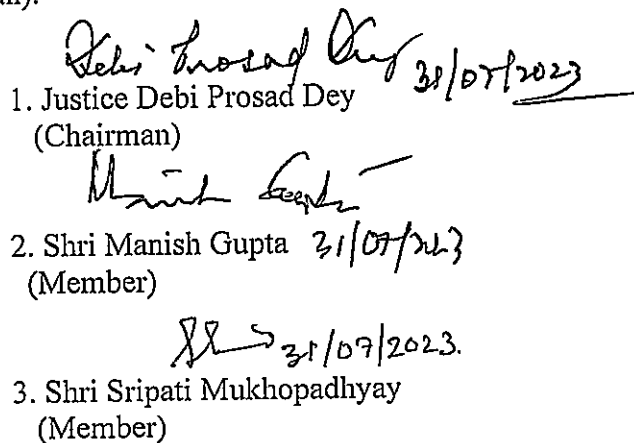 Debi Prosad Dey 31/07/2023
1. Justice Debi Prosad Dey
(Chairman)
Manish Gupta
2. Shri Manish Gupta 31/07/2023
(Member)
31/07/2023.
3. Shri Sripati Mukhopadhyay
(Member)